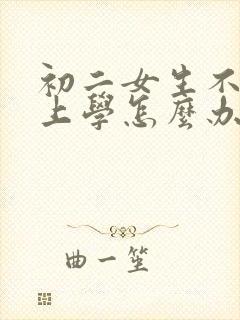 初二女生不
上學怎麼办
曲一笙